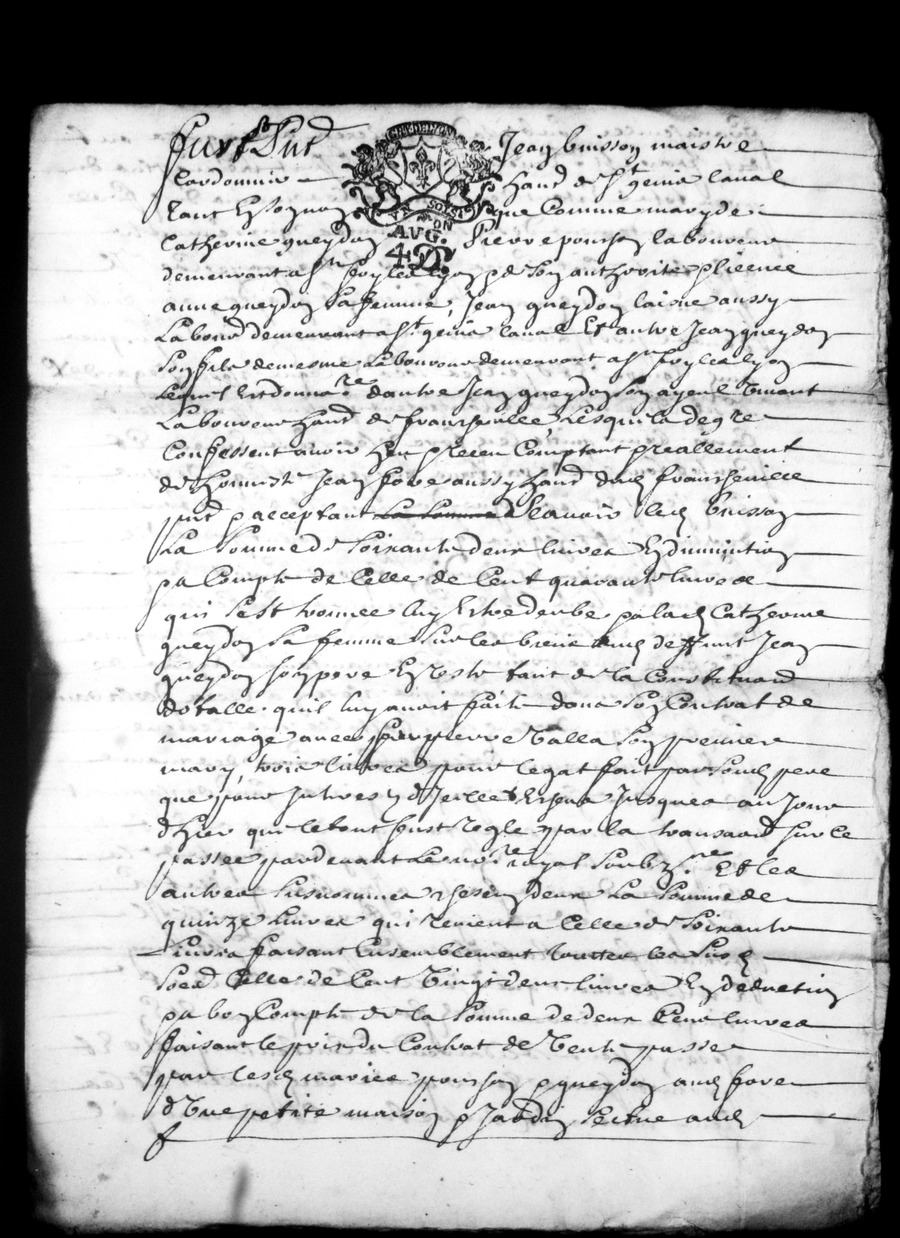 furent presents Jean buisson maistre
cordonnier hant de St genis laval
tant en son nom que Comme mary de
Catherine gueydon Pierre ponson laboureur
demeurant a Ste foy les lyon de son authorite
anne gueydon sa femme, Jean gueydon laisne aussy
Labour demeurant a St genis laval Et autre Jean gueydon
son fils demesme Laboureur demeurant a Ste foy les lyon
lequel Est donnare dautre Jean gueydon son ayeul vivant
Laboureur hant de francheville, Lesquels de gre
Confessent avoir heu & receu Comptant & reallement
de honneste Jean favre aussy hant dud francheville
pnt & acceptant Scavoir led buisson
La Somme de Soixante deux livres En diminution
& a Compte de Celle de Cent quarante livres
qui sest trouvee luy Estre deube & a lad Catherine
gueydon sa femme sur les biens dud deffunt Jean
gueydon son pere En reste tant de la Constitution
dotalle quil luy avoit faite dans son Contrat de
mariage avec feu pierre Valla son premier
mary, trois livres pour legat fait par sond pere
que pour Interests Jusques au Jour
dhier que le tout fust regle par la transaction sur ce
passee pardevant Le nore royal soubzne Et les
autres susnommes deux La Somme de
quinze livres qui revient a Celle de Soixante
livres faisant Ensemblement toutes les susd
Soes Celle de Cent Vingt deux livres En deduction
& a bon Compte de la Somme de deux Cens livres
faisant le prix du Contrat de Vente passe
par lesd maries ponson & gueydon aud favre
dVne petite maison & Jardin scitue aud
CRY DE LYON
AVG.
4 D